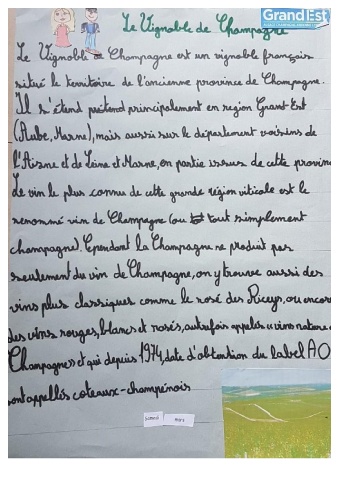 Le Vignoble de Champagne
GrandEst
Le Vignoble de Champagne est un vignoble français
situé le territoire de l'ancienne province de Champagne.
Il s'étend prétend principalement en region Grant-Est
(Aube, Marne), mais aussi sur le département voisins de
l'Aisne et de Seine et Marne, en partie issues de cette provin
Le vin le plus connu de cette grande région viticole est le
renommé vin de Champagne (ou tout simplement
champagne). Cependant la Champagne ne produit pas
seulement du vin de Champagne, on y trouve aussi des
vins plus classiques comme le rosé des Riceys, ou encore
des vins rouges, blancs et rosés, autrefois appelés « vins nature
Champagnes et qui depuis 1974, date d'obtention du label AO
sont appellés coteaux-champenois